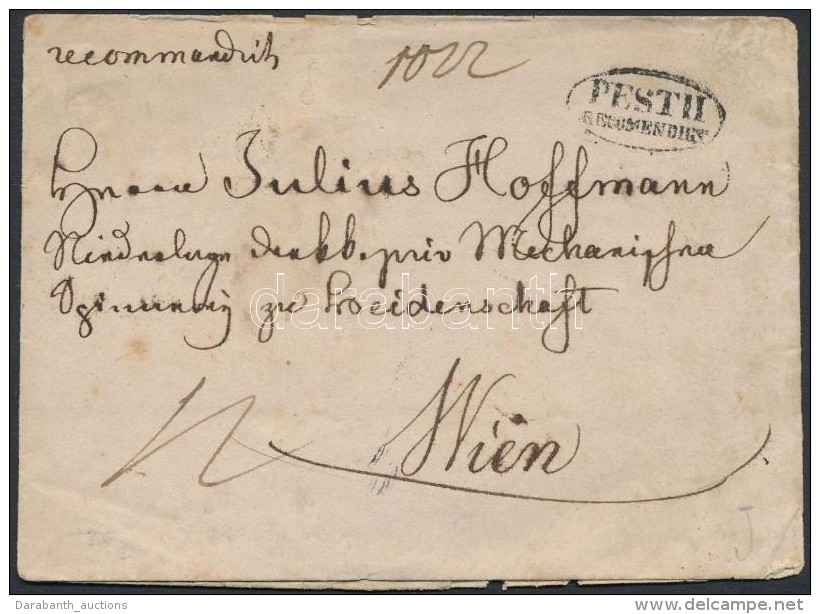 recommandirt
1022
PESTH
RECOMENDIRT
Herrn Julius Hoffmann
Niederlage der kk. priv Mechanischen
Spinnerey zu Heidenschaft
darabanth
Wien
Darabanth_auctions
www.delcampe.net